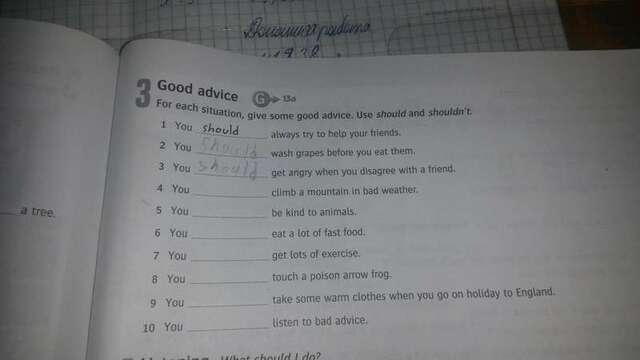 Домашня работа
3 Good advice G 13a
For each situation, give some good advice. Use should and shouldn't.
1 You should always try to help your friends.
2 You should wash grapes before you eat them.
3 You should get angry when you disagree with a friend.
4 You ____ climb a mountain in bad weather.
a tree.
5 You ____ be kind to animals.
6 You ____ eat a lot of fast food.
7 You ____ get lots of exercise.
8 You ____ touch a poison arrow frog.
9 You ____ take some warm clothes when you go on holiday to England.
10 You ____ listen to bad advice.
What should I do?